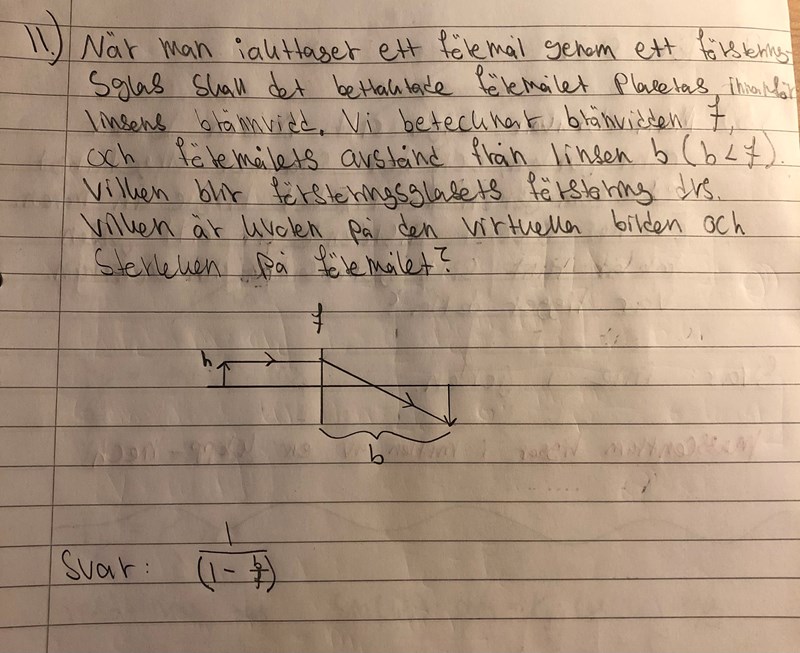 11.) När man iakttager ett föremål genom ett förstorings-
sglas skall det betraktade föremålet placeras innanför
linsens brännvidd. Vi betecknar brännvidden f,
och föremålets avstånd från linsen b (b < f).
Vilken blir förstoringsglasets förstoring dvs.
vilken är kvoten på den virtuella bilden och
storleken på föremålet?
f
h
b
Svar: 1/(1 - b/f)